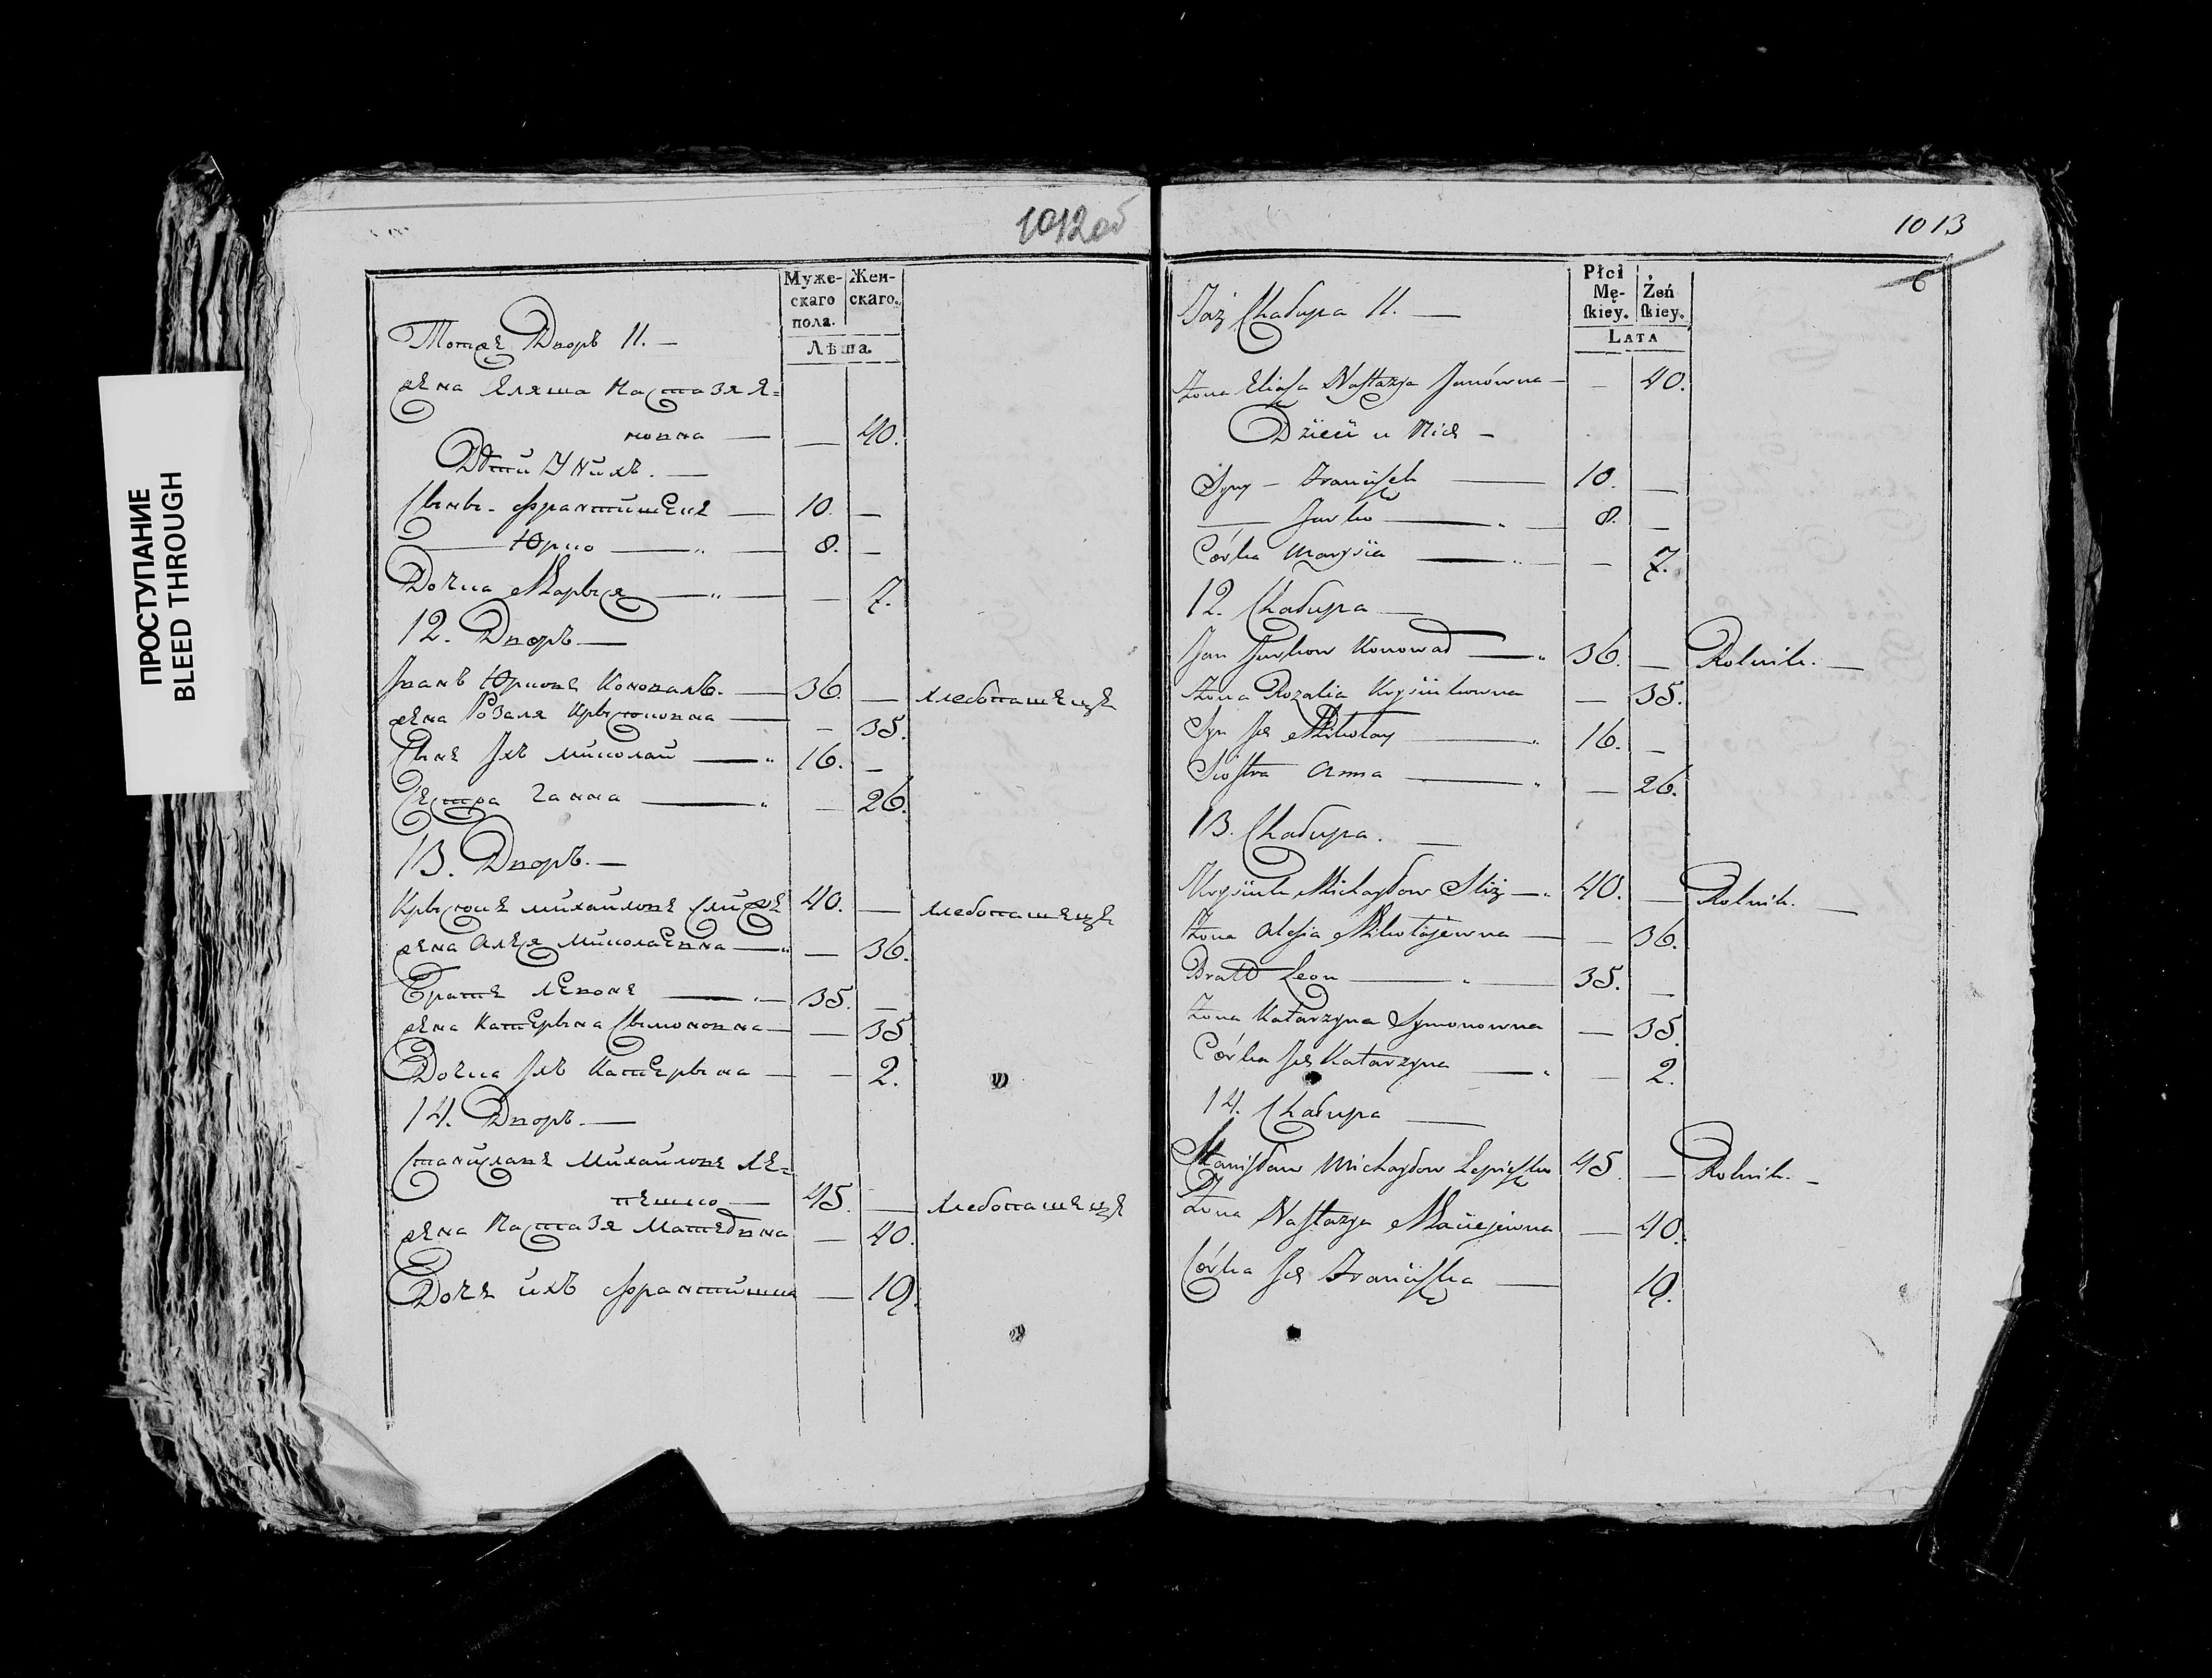 ПРОСТУПАНИЕ
BLEED THROUGH
1012об
Муже-
скаго
пола.
Жен-
скаго.
Лѣта.
Тотже Дворъ 11. —
жена Еляша Настазя Я=
новна — — 40.
Дѣти У Нихъ. —
Сыны - Франтишекъ — 10. —
— Юрко — „ — 8. —
Дочка Марыся — „ — — 7.
12. Дворъ —
Иванъ Юрковъ Коновалъ. — 36. — хлебопашецъ
жена Розаля Крысюковна — — 35.
Сынъ Ихъ Миколай — „ 16. —
Сестра Ганна — „ — 26.
13. Дворъ. —
Крысюкъ Михайловъ Слижъ 40. — хлебопашецъ
жена Алеся Миколаевна — „ — 36.
Братъ Левонъ — „ — 35. —
жена Катерына Сымоновна — — 35.
Дочка Ихъ Катерына — — 2.
14. Дворъ. —
Станиславъ Михайловъ Ле=
пешко — 45. — хлебопашецъ
жена Настазя Матеѣвна — 40.
Дочъ ихъ Франтишка — 19.
1013
6
Płci
Mę-
ſkiey.
Żeń
ſkiey.
LATA
Taż Chałupa 11. —
Żona Eliaſa Naſtazya Janówna — — 40.
Dzieci u Nich —
Syny — Franciſzek — 10. —
— Jurko — „ — 8. —
Córka Marysia — „ — — 7.
12. Chałupa —
Jan Jurkow Konował — „ 36. — Rolnik. —
Żona Rozalia Krysiukowna — 35.
Syn Ich Mikołay — „ 16. —
Sioſtra Anna — „ — 26.
13. Chałupa. —
Krysiuk Michayłow Sliż — „ 40. — Rolnik. —
Żona Aleſia Mikołajewna — — 36.
Bratt Leon — „ — 35. —
Żona Katarzyna Symonowna — 35.
Córka Ich Katarzyna — „ — 2.
14. Chałupa —
Staniſław Michayłow Lepieſzko 45. — Rolnik. —
Żona Naſtazya Maciejewna — 40.
Córka Ich Franciſzka — 19.